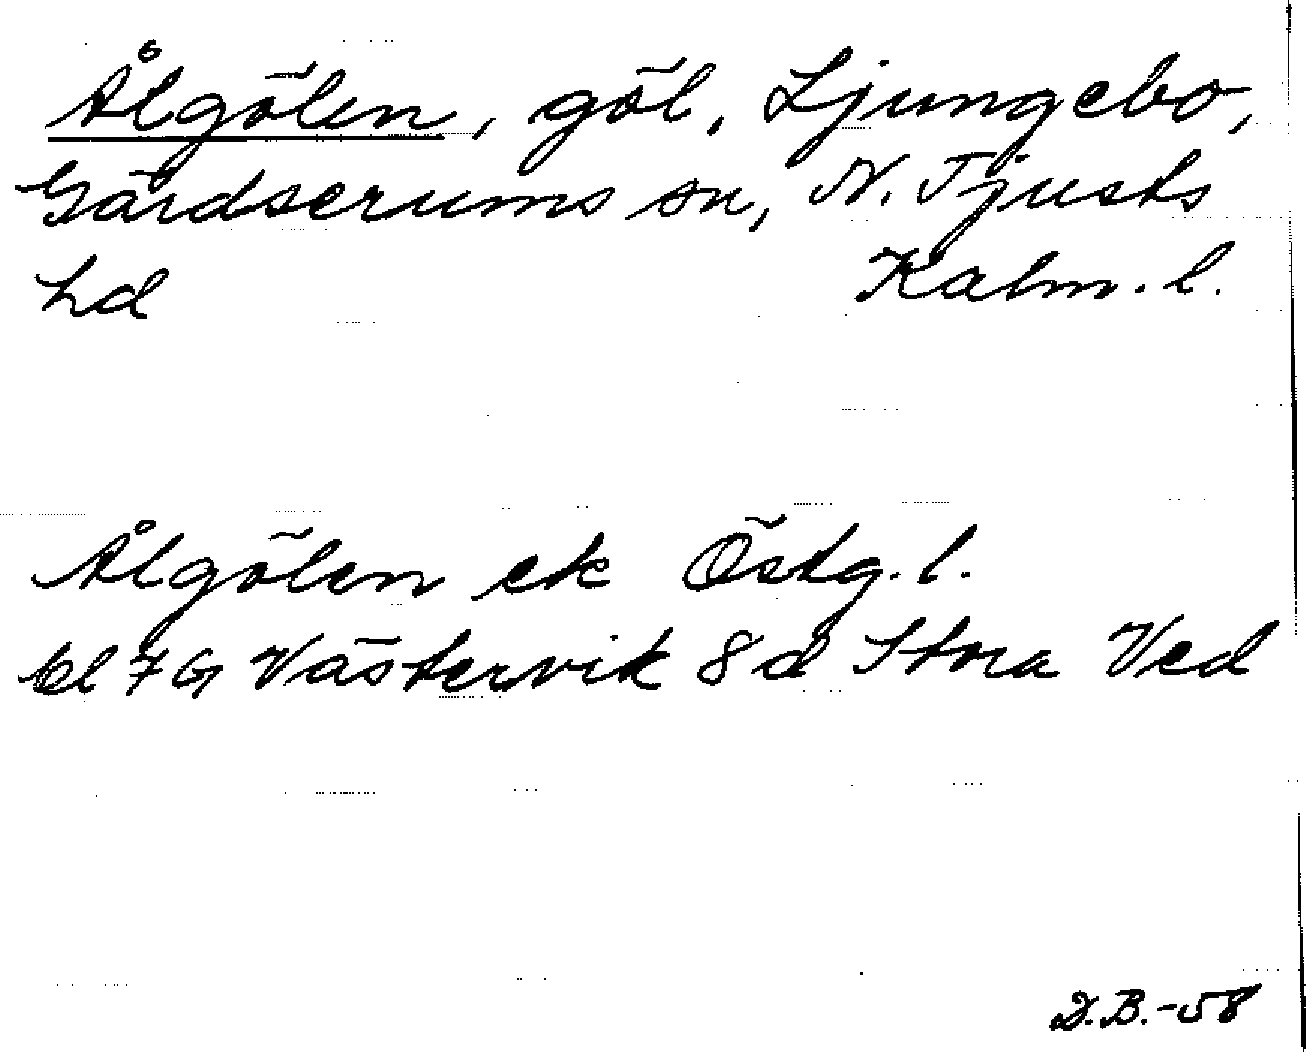 Ålgölen, göl, Ljungebo,
Gärdserums sn, N. Tjusts
hd Kalm. l.
Ålgölen ek Östg. l.
bl 7G Västervik 8d Stora Ved
D.B.-58